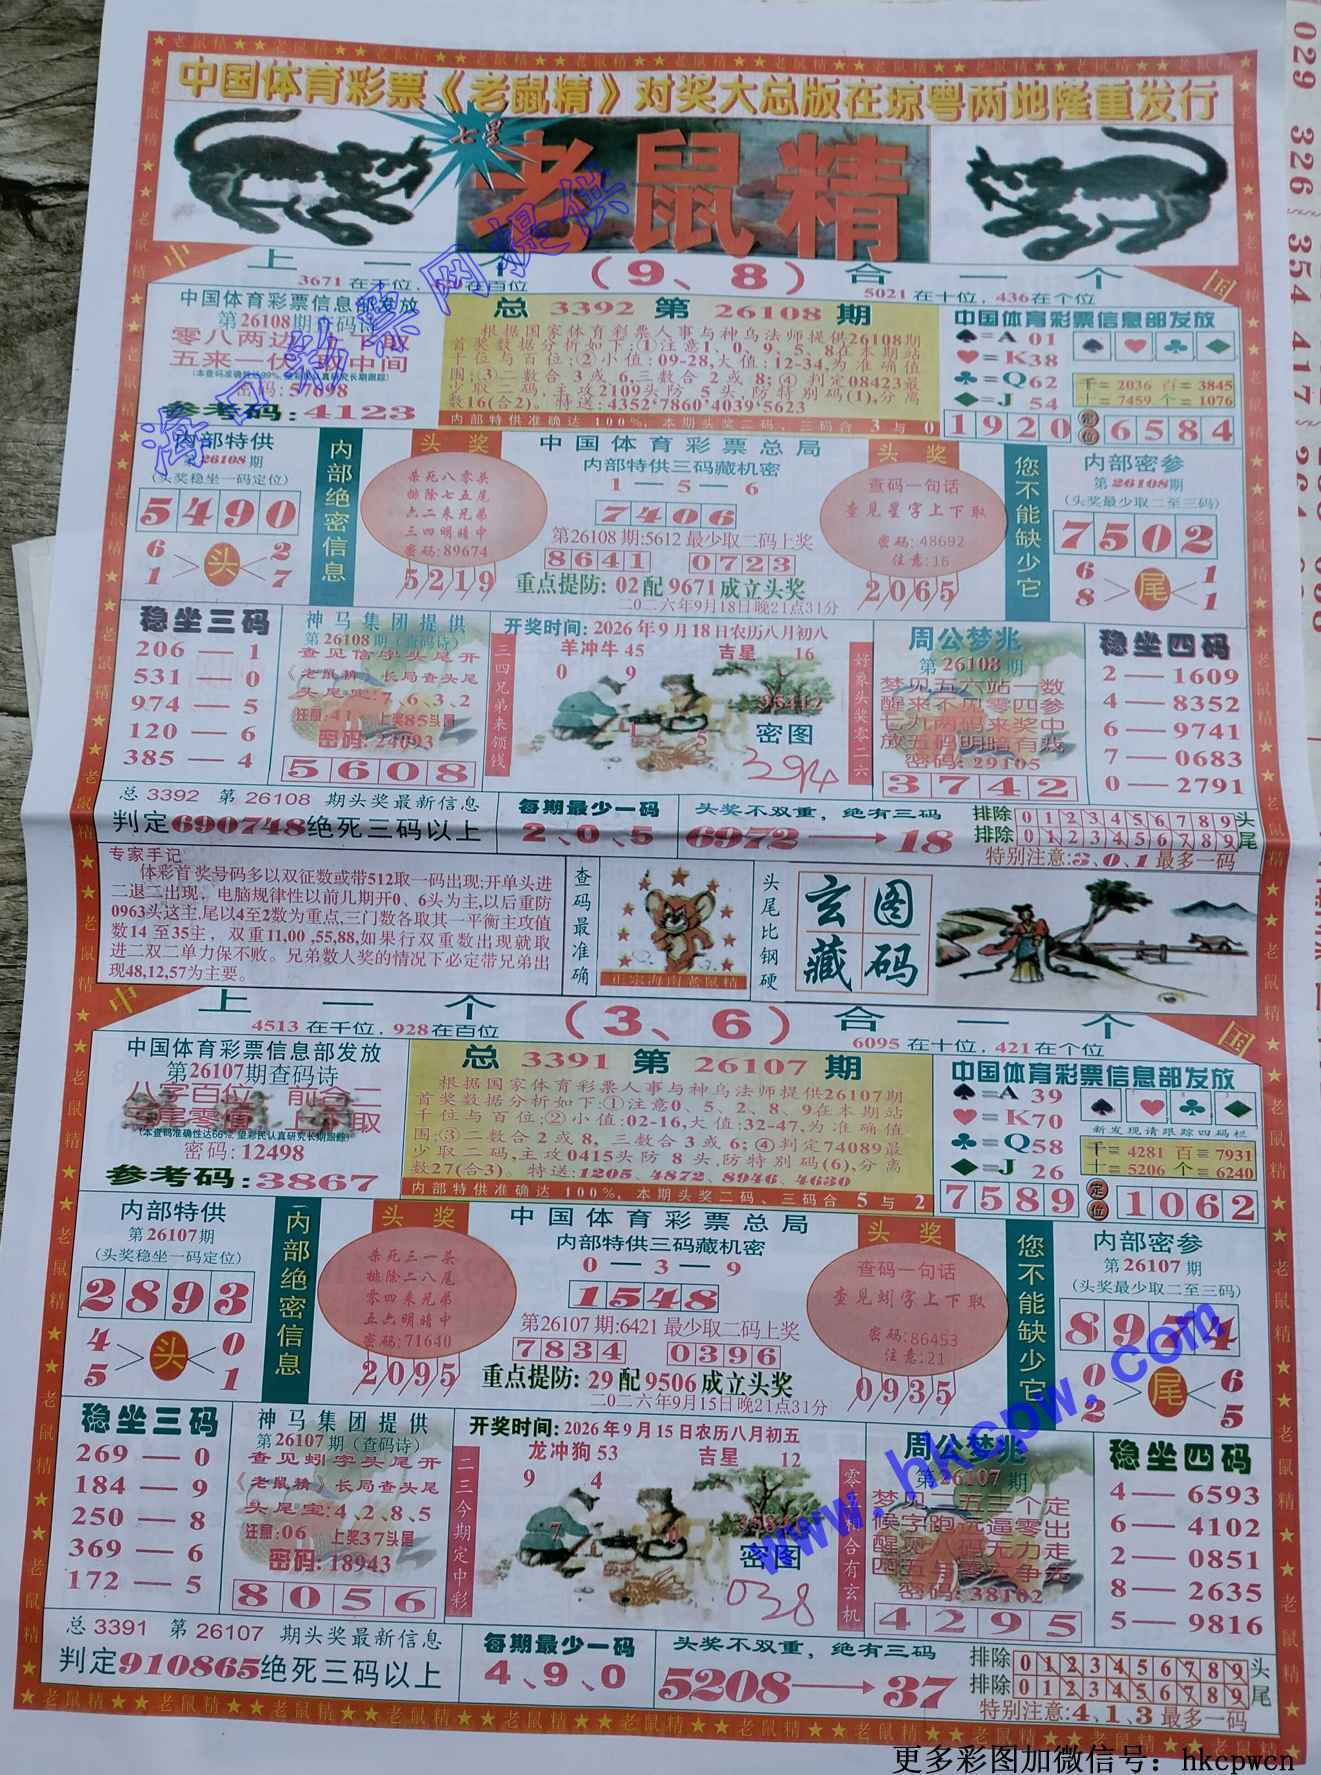 中国体育彩票《老鼠精》对奖大总版在琼粤两地隆重发行
七星
老鼠精
上一个（9、8）合一个
3671在千位，
5021在十位，436在个位
中国体育彩票信息部发放
第26108期查码诗
零八两边上下取
密码：57698
参考码：4123
总 3392 第 26108 期
根据国家体育彩票人事与神鸟法师提供26108期
首奖数据分析如下：①注意1、0、9、5、8在本期站
千位与百位：②小值：09-28，大值：12-34，为准确值
围：③二数合3或6，三数合2或8；④判定08423最
少取三码，主攻2109头防5头，防特别码(1)，分离
数16(合2)。特送：4352'7860'4039'5623
内部特供准确达100%，本期头奖二码、三码合3与0
中国体育彩票信息部发放
♠=A 01
♥=K38
♣=Q62
♦=J 54
千=2036 百=3845
十=7459 个=1076
1920 定位 6584
内部特供
第26108期
(头奖稳坐一码定位)
5490
6 1 头 2 7
内部绝密信息
头奖
杀死八零头
排除七五尾
六二来兄弟
三四明暗中
密码：89674
5219
中国体育彩票总局
内部特供三码藏机密
1—5—6
7406
第26108期:5612最少取二码上奖
8641 0723
重点提防：02配9671成立头奖
二〇二六年9月18日晚21点31分
头奖
查码一句话
查见星字上下取
密码:48692
注意:16
2065
您不能缺少它
内部密参
第26108期
(头奖最少取二至三码)
7502
6 8 尾 1 1
稳坐三码
206—1
531—0
974—5
120—6
385—4
神马集团提供
第26108期(查码诗)
查见信字头尾开
《老鼠精》长局查头尾
头尾宝:7、6、3、2
注意:41 上奖85头尾
密码:24093
5608
三四兄弟来领钱
开奖时间：2026年9月18日农历八月初八
羊冲牛45 吉星 16
0 9
1 5
96412
密图
394
好象头奖零二六
周公梦兆
第26108期
梦见五六站一数
醒来不见零四参
七九两码来奖中
放五码明暗有我
密码:29105
3742
稳坐四码
2—1609
4—8352
6—9741
7—0683
0—2791
总3392 第26108期头奖最新信息
判定690748绝死三码以上
每期最少一码
2、0、5
头奖不双重，绝有三码
6972→18
排除 0 1 2 3 4 5 6 7 8 9 头
排除 0 1 2 3 4 5 6 7 8 9 尾
特别注意:3、0、1最多一码
专家手记
体彩首奖号码多以双征数或带512取一码出现;开单头进
二退二出现，电脑规律性以前几期开0、6头为主,以后重防
0963头这主,尾以4至2数为重点,三门数各取其一平衡主攻值
数14至35主，双重11,00,55,88,如果行双重数出现就取
进二双二单力保不败。兄弟数人奖的情况下必定带兄弟出
现48,12,57为主要。
查码最准确
正宗海南老鼠精
头尾比钢硬
玄图藏码
上一个（3、6）合一个
4513在千位，928在百位
6095在十位，421在个位
中国体育彩票信息部发放
第26107期查码诗
八字百位前合二
(本查码准确性达66%，望彩民认真研究长期跟踪)
密码:12498
参考码:3867
总 3391 第 26107 期
根据国家体育彩票人事与神鸟法师提供26107期
首奖数据分析如下:①注意0、5、2、8、9在本期站
千位与百位:②小值:02-16,大值:32-47,为准确值
围:③二数合2或8，三数合3或6;④判定74089最
少取二码,主攻0415头防8头,防特别码(6),分离
数27(合3)。特送:1205、4872、8946、4630
内部特供准确达100%，本期头奖二码、三码合5与2
中国体育彩票信息部发放
♠=A 39
♥=K70
♣=Q58
♦=J 26
新发现请跟踪四码栏
千=4281 百=7931
十=5206 个=6240
7589 定位 1062
内部特供
第26107期
(头奖稳坐一码定位)
2893
4 5 头 0 1
内部绝密信息
头奖
杀死三一头
排除二八尾
零四来兄弟
五六明暗中
密码:71640
2095
中国体育彩票总局
内部特供三码藏机密
0—3—9
1548
第26107期:6421最少取二码上奖
7834 0396
重点提防:29配9506成立头奖
二〇二六年9月15日晚21点31分
头奖
查码一句话
查见蚓字上下取
密码:86453
注意:21
0935
您不能缺少它
内部密参
第26107期
(头奖最少取二至三码)
0 2 尾 6 5
稳坐三码
269—0
184—9
250—8
369—6
172—5
神马集团提供
第26107期(查码诗)
查见蚓字头尾开
《老鼠精》长局查头尾
头尾宝:4、2、8、5
注意:06 上奖37头尾
密码:18943
8056
二三今期定中彩
开奖时间:2026年9月15日农历八月初五
龙冲狗53 吉星 12
9 4
密图
038
周公梦兆
第26107期
梦见一五三个定
候字跑远逼零出
醒见八码无力走
密码:38162
4295
稳坐四码
4—6593
6—4102
2—0851
8—2635
5—9816
总3391 第26107期头奖最新信息
判定910865绝死三码以上
每期最少一码
4、9、0
头奖不双重，绝有三码
5208→37
排除 0 1 2 3 4 5 6 7 8 9 头
排除 0 1 2 3 4 5 6 7 8 9 尾
特别注意:4、1、3最多一码
海口彩票网提供
www.hkcpw.com
更多彩图加微信号：hkcpwcn